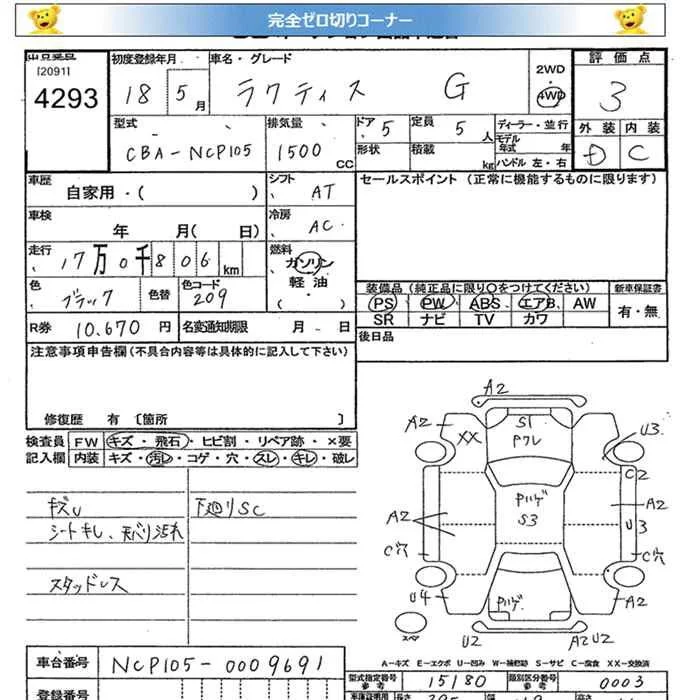 完全ゼロ切りコーナー
[2091]
4293
初度登録年月
18 5 月
車名・グレード
ラクティス G
2WD
4WD
評価点
3
外装 内装
D C
型式
CBA-NCP105
排気量
1500 CC
ドア 5
定員 5 人
形状
積載 kg
ディーラー・並行
モデル年式 年
ハンドル 左・右
車歴
自家用・( )
シフト AT
セールスポイント (正常に機能するものに限ります)
車検
年 月( 日)
冷房 AC
走行
17万0千806 km
燃料
ガソリン
軽油
・( )
色
ブラック
色替
色コード
209
装備品(純正品に限り○をつけてください)
PS PW ABS エアB AW
SR ナビ TV カワ
新車保証書
有・無
R券 10.670 円
名変通知期限 月 日
後日品
注意事項申告欄(不具合内容等は具体的に記入して下さい)
修復歴 有 〔箇所 〕
検査員
記入欄
FW キズ・飛石・ヒビ割・リペア跡・×要
内装 キズ・汚レ・コゲ・穴・スレ・キレ・破レ
キズU
シートキレ、天バリ汚れ
スタッドレス
下廻りSC
A2
A2
XX
S1
Pワレ
U3
C2
Pハゲ
S3
A2
A2
U3
C穴
C穴
U4
Pハゲ
A2
スペア
U2
A2 U2
A-キズ E-エクボ U-凹ミ W-補修跡 S-サビ C-腐食 XX-交換済
車台番号 NCP105-0009691
型式指定番号
参考
15180
類別区分番号
参考
0003
登録番号
長さ